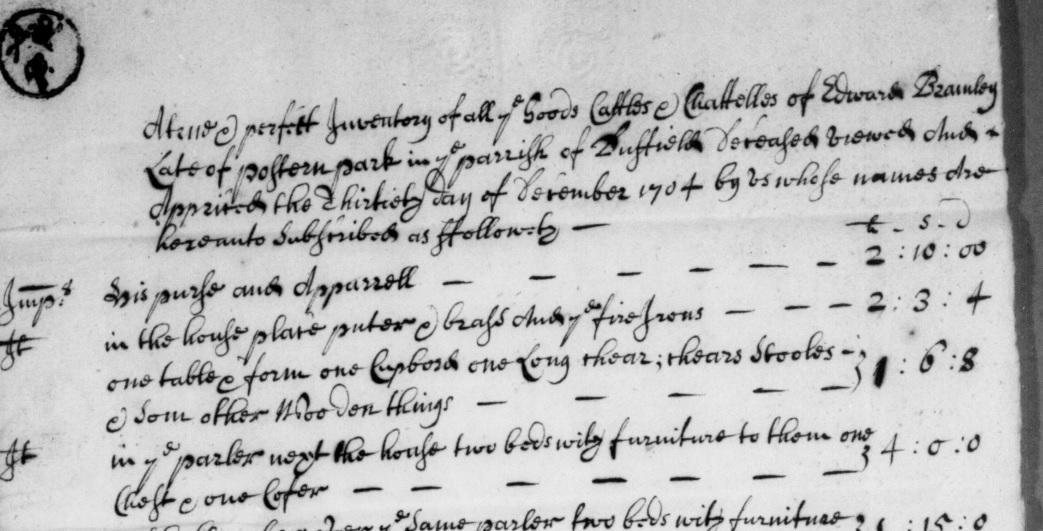 A true & perfect Inventory of all yᵉ Goods Cattles & Chattelles of Edward Bramley
Late of postern park in yᵉ parrish of Duffield Deceased viewed And
Apprited the Thirtieth day of December 1704 by vs whose names Are
hereunto Subscribed as ffolloweth —
£ - s - D
Impˢ His purse and Apparrell — — — — — — 2 : 10 : 00
It in the house plate puter & brass And yᵉ fire Irons — — — 2 : 3 : 4
one table & form one Cupbord one Long chear ; chears Stooles -
& Som other Wooden things — — — — — } 1 : 6 : 8
It in yᵉ parler next the house two beds with furniture to them one
Chest & one Cofer — — — — — — — } 4 : 0 : 0
yᵉ Same parler two beds with furniture 15 : 8